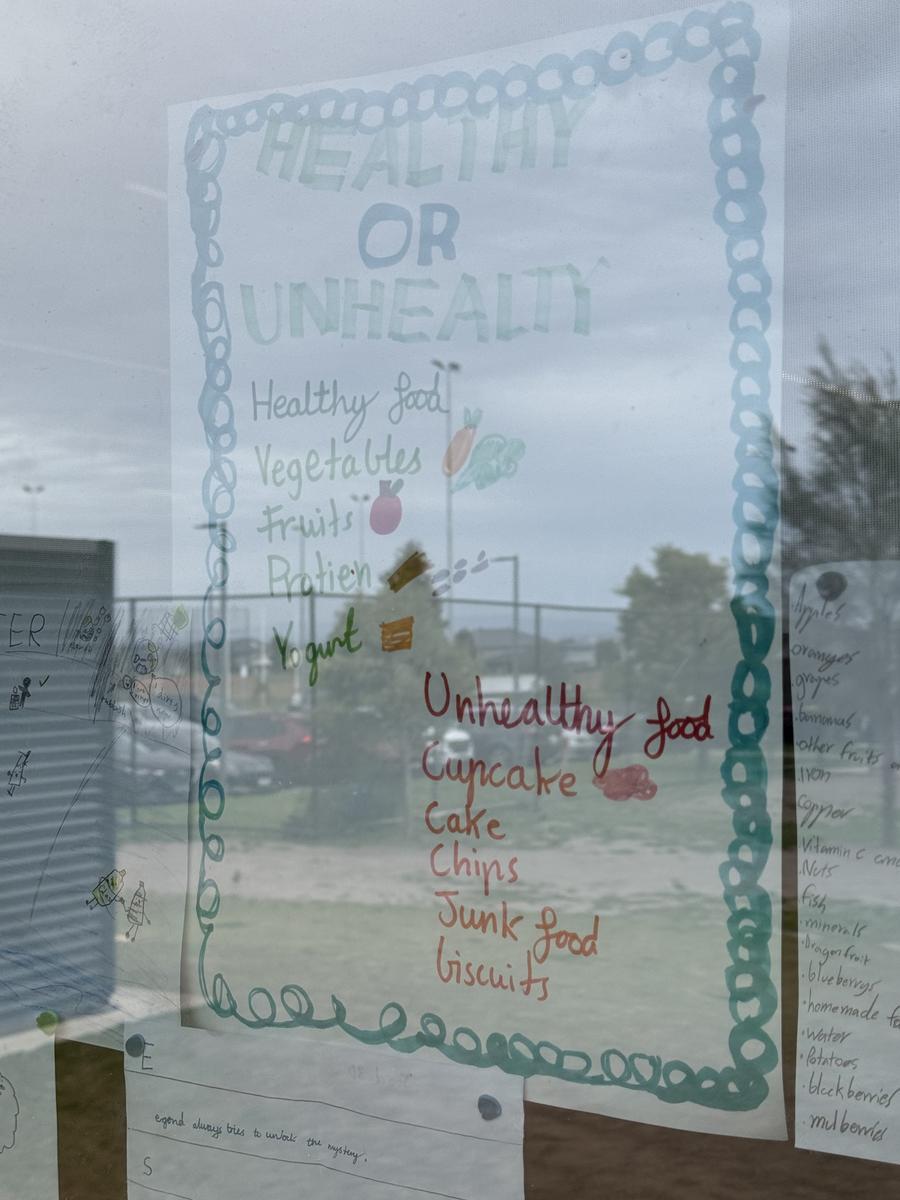 HEALTHY
OR
UNHEALTY
Healthy food
Vegetables
Fruits
Protien
Yogurt
Unhealthy food
Cupcake
Cake
Chips
Junk food
biscuits
ER
.Apples
oranges
.grapes
.bananas
.other fruits
.iron
copper
Vitamin c
.Nuts
fish
.minerals
.Dragonfruit
.blueberrys
.homemade
.water
.Potatoes
.blackberries
.mulberries
E
egend always tries to unlock the mystery.
S